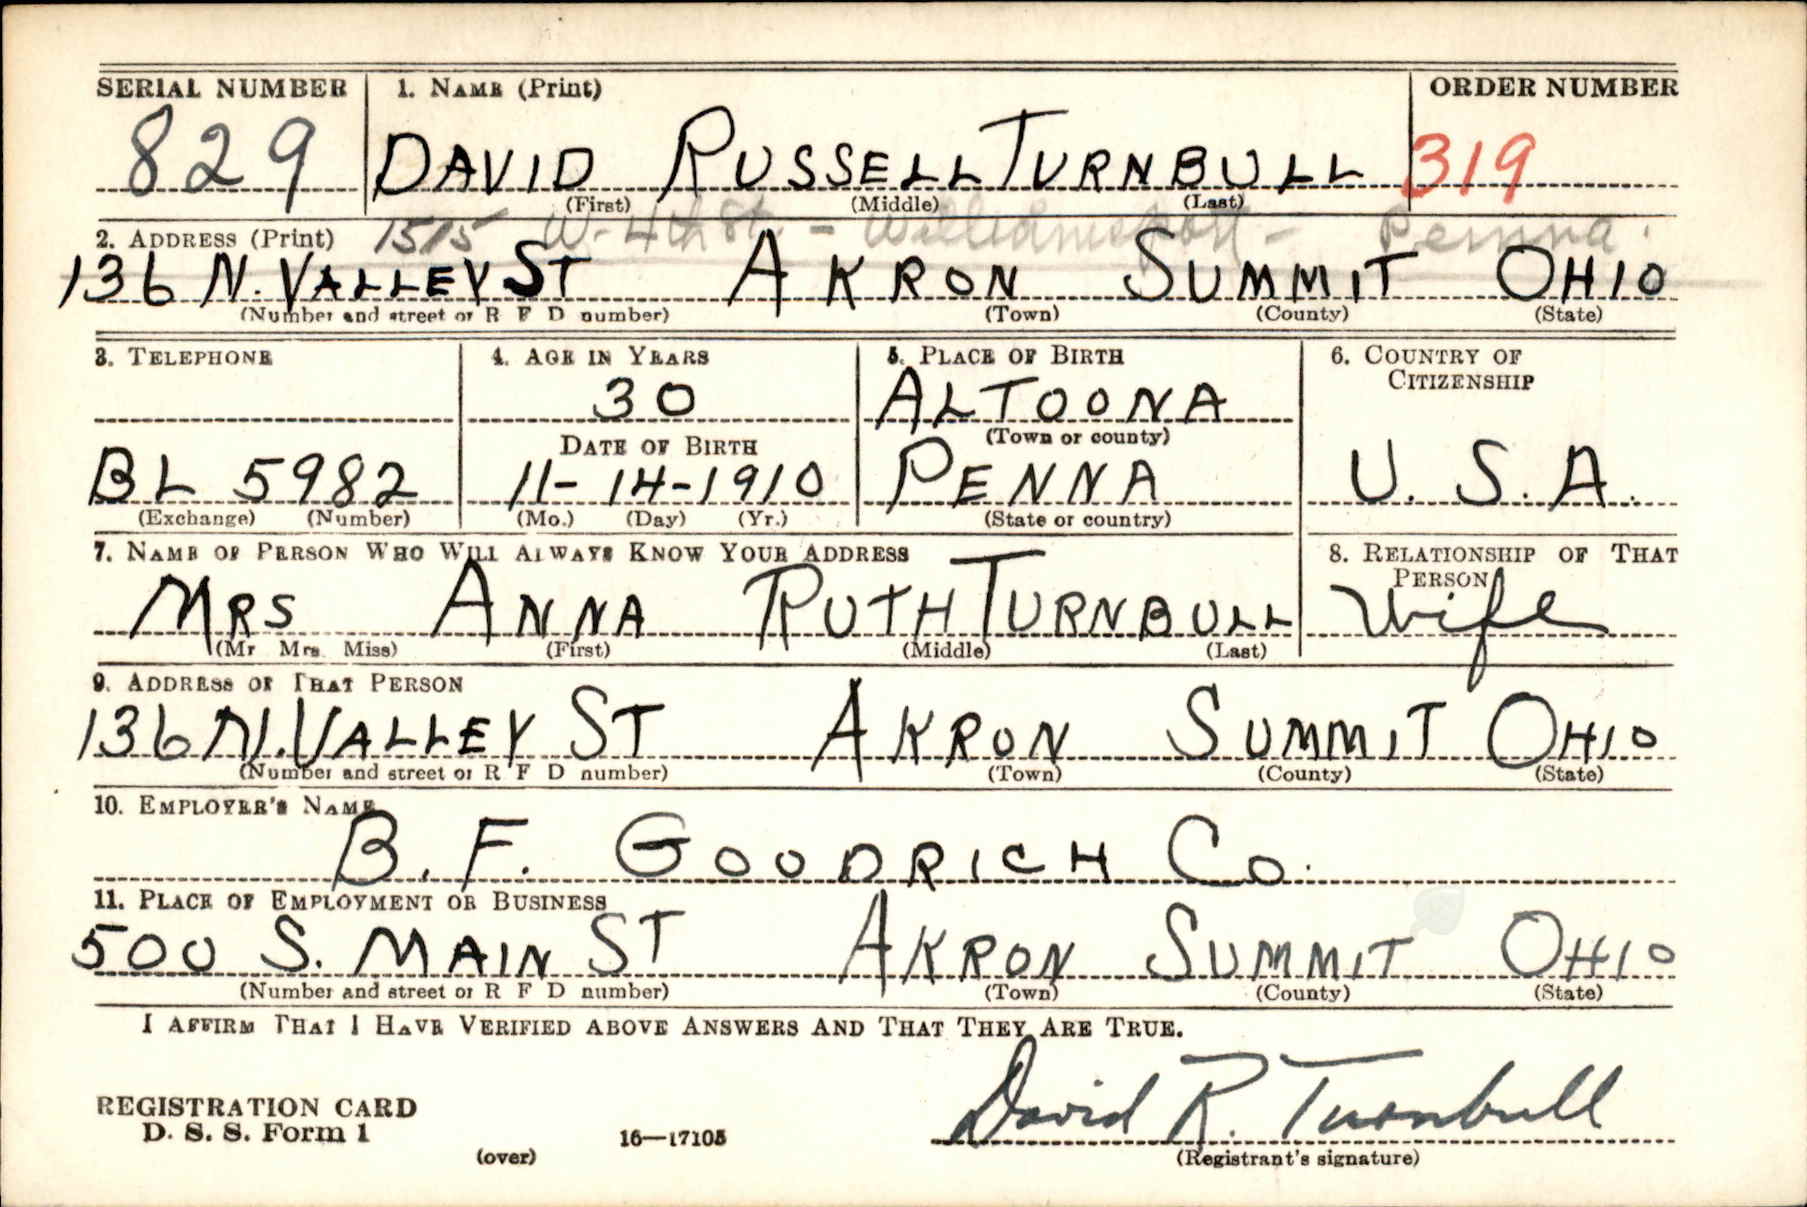 SERIAL NUMBER 1. NAME (Print) ORDER NUMBER
829 DAVID RUSSELL TURNBULL 319
(First) (Middle) (Last)
1515 W. 4th St. - Williamsport - Penna.
2. ADDRESS (Print)
136 N. VALLEY ST AKRON SUMMIT OHIO
(Number and street or R F D number) (Town) (County) (State)
3. TELEPHONE 4. AGE IN YEARS 5. PLACE OF BIRTH 6. COUNTRY OF
CITIZENSHIP
30 ALTOONA
DATE OF BIRTH (Town or county)
BL 5982 11-14-1910 PENNA U.S.A.
(Exchange) (Number) (Mo.) (Day) (Yr.) (State or country)
7. NAME OF PERSON WHO WILL ALWAYS KNOW YOUR ADDRESS 8. RELATIONSHIP OF THAT
PERSON
MRS ANNA RUTH TURNBULL Wife
(Mr Mrs Miss) (First) (Middle) (Last)
9. ADDRESS OF THAT PERSON
136 N. VALLEY ST AKRON SUMMIT OHIO
(Number and street or R F D number) (Town) (County) (State)
10. EMPLOYER'S NAME
B. F. GOODRICH CO.
11. PLACE OF EMPLOYMENT OR BUSINESS
500 S. MAIN ST AKRON SUMMIT OHIO
(Number and street or R F D number) (Town) (County) (State)
I AFFIRM THAT I HAVE VERIFIED ABOVE ANSWERS AND THAT THEY ARE TRUE.
David R. Turnbull
REGISTRATION CARD
D. S. S. Form 1 16—17105
(over) (Registrant's signature)